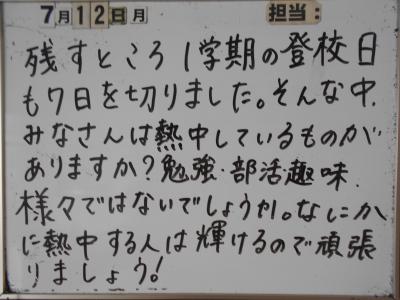 7月12日月 担当:
残すところ1学期の登校日
も7日を切りました。そんな中、
みなさんは熱中しているものが
ありますか?勉強・部活趣味、
様々ではないでしょうか。なにか
に熱中する人は輝けるので頑張
りましょう!